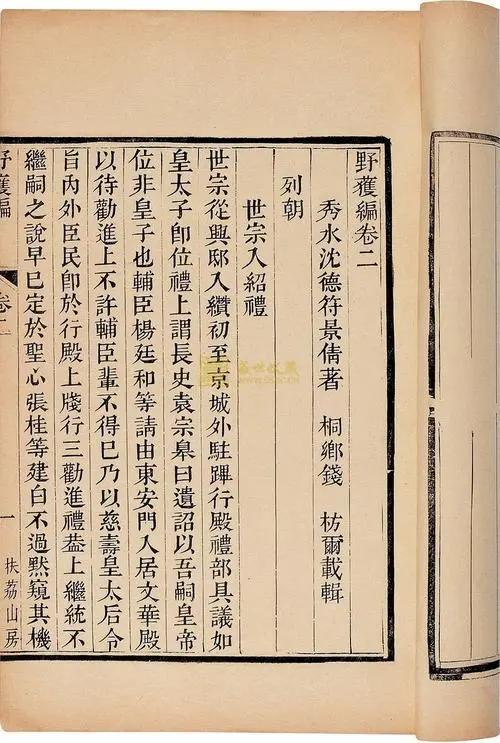 野獲編卷二
秀水沈德符景倩著　桐鄉錢　枋爾載輯
列朝
世宗入紹禮
世宗從興邸入纘初至京城外駐蹕行殿禮部具議如
皇太子卽位禮上謂長史袁宗皋曰遺詔以吾嗣皇帝
位非皇子也輔臣楊廷和等請由東安門入居文華殿
以待勸進上不許輔臣輩不得已乃以慈壽皇太后令
旨內外臣民卽於行殿上牋行三勸進禮葢上繼統不
繼嗣之說早已定於聖心張桂等建白不過黙窺其機
野獲編
卷二
一
扶荔山房